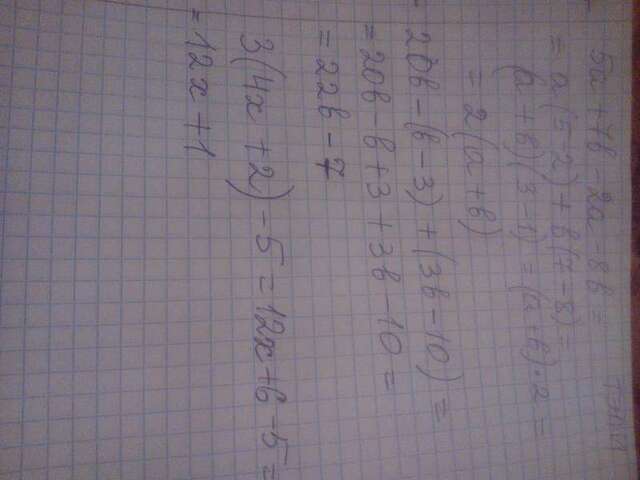 5a + 7b - 2a - 8b =
= a(5-2) + b(7-8) =
(a + b)(3-1) = (a+b)·2 =
= 2(a+b)
20b - (b - 3) + (3b - 10) =
= 20b - b + 3 + 3b - 10 =
= 22b - 7
3(4x + 2) - 5 = 12x + 6 - 5 =
= 12x + 1